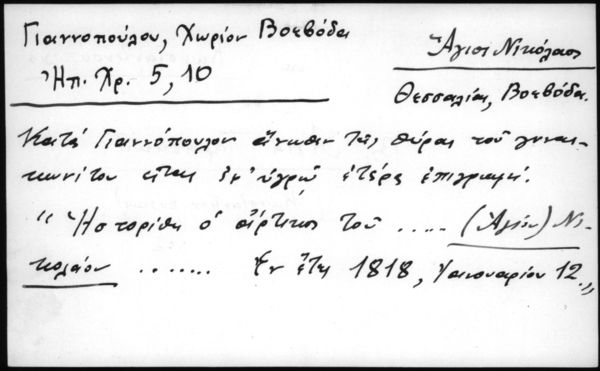 Γιαννοπούλου, Χωρίον Βοεβόδα
Ἠπ. Χρ. 5, 10
Ἅγιος Νικόλαος
Θεσσαλίας, Βοεβόδα.
Κατά Γιαννόπουλον ἄνωθεν τῆς θύρας τοῦ γυναι-
κωνίτου εἶναι ἐν ὑγρῷ ἑτέρα ἐπιγραφή.
"Ἡστορίθη ὁ τοῦ ..... (Ἁγίου) Νι-
κολάου ....... Ἐν ἔτει 1818, Ἰανουαρίου 12."